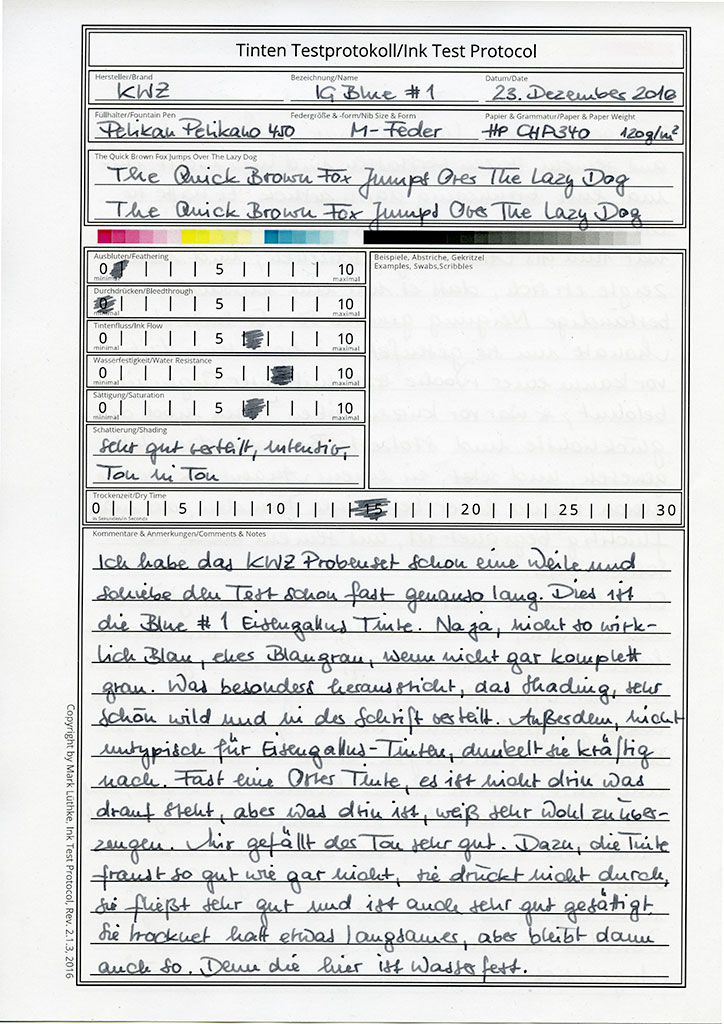 Tinten Testprotokoll/Ink Test Protocol
Hersteller/Brand Bezeichnung/Name Datum/Date
KWZ IG Blue #1 23. Dezember 2016
Füllhalter/Fountain Pen Federgröße & -form/Nib Size & Form Papier & Grammatur/Paper & Paper Weight
Pelikan Pelikano 450 M-Feder HP CHP340 120g/m²
The Quick Brown Fox Jumps Over The Lazy Dog
The Quick Brown Fox Jumps Over The Lazy Dog
The Quick Brown Fox Jumps Over The Lazy Dog
Ausbluten/Feathering
0 1 5 10
minimal maximal
Durchdrücken/Bleedthrough
0 5 10
minimal maximal
Tintenfluss/Ink Flow
0 5 10
minimal maximal
Wasserfestigkeit/Water Resistance
0 5 10
minimal maximal
Sättigung/Saturation
0 5 10
minimal maximal
Schattierung/Shading
sehr gut verteilt, intensiv,
Ton in Ton
Beispiele, Abstriche, Gekritzel
Examples, Swabs,Scribbles
Trockenzeit/Dry Time
0 5 10 15 20 25 30
in Sekunden/in Seconds
Kommentare & Anmerkungen/Comments & Notes
Ich habe das KWZ Probenset schon eine Weile und
schiebe den Test schon fast genauso lang. Dies ist
die Blue #1 Eisengallus Tinte. Na ja, nicht so wirk-
lich Blau, eher Blaugrau, wenn nicht gar komplett
grau. Was besonders heraussticht, das Shading, sehr
schön wild und in der Schrift verteilt. Außerdem, nicht
untypisch für Eisengallus-Tinten, dunkelt sie kräftig
nach. Fast eine Oster Tinte, es ist nicht drin was
drauf steht, aber was drin ist, weiß sehr wohl zu über-
zeugen. Mir gefällt der Ton sehr gut. Dazu, die Tinte
franst so gut wie gar nicht, sie drückt nicht durch,
sie fließt sehr gut und ist auch sehr gut gesättigt.
Sie trocknet halt etwas langsamer, aber bleibt dann
auch so. Denn die hier ist Wasserfest.
Copyright by Mark Lüthke, Ink Test Protocol, Rev. 2.1.3, 2016